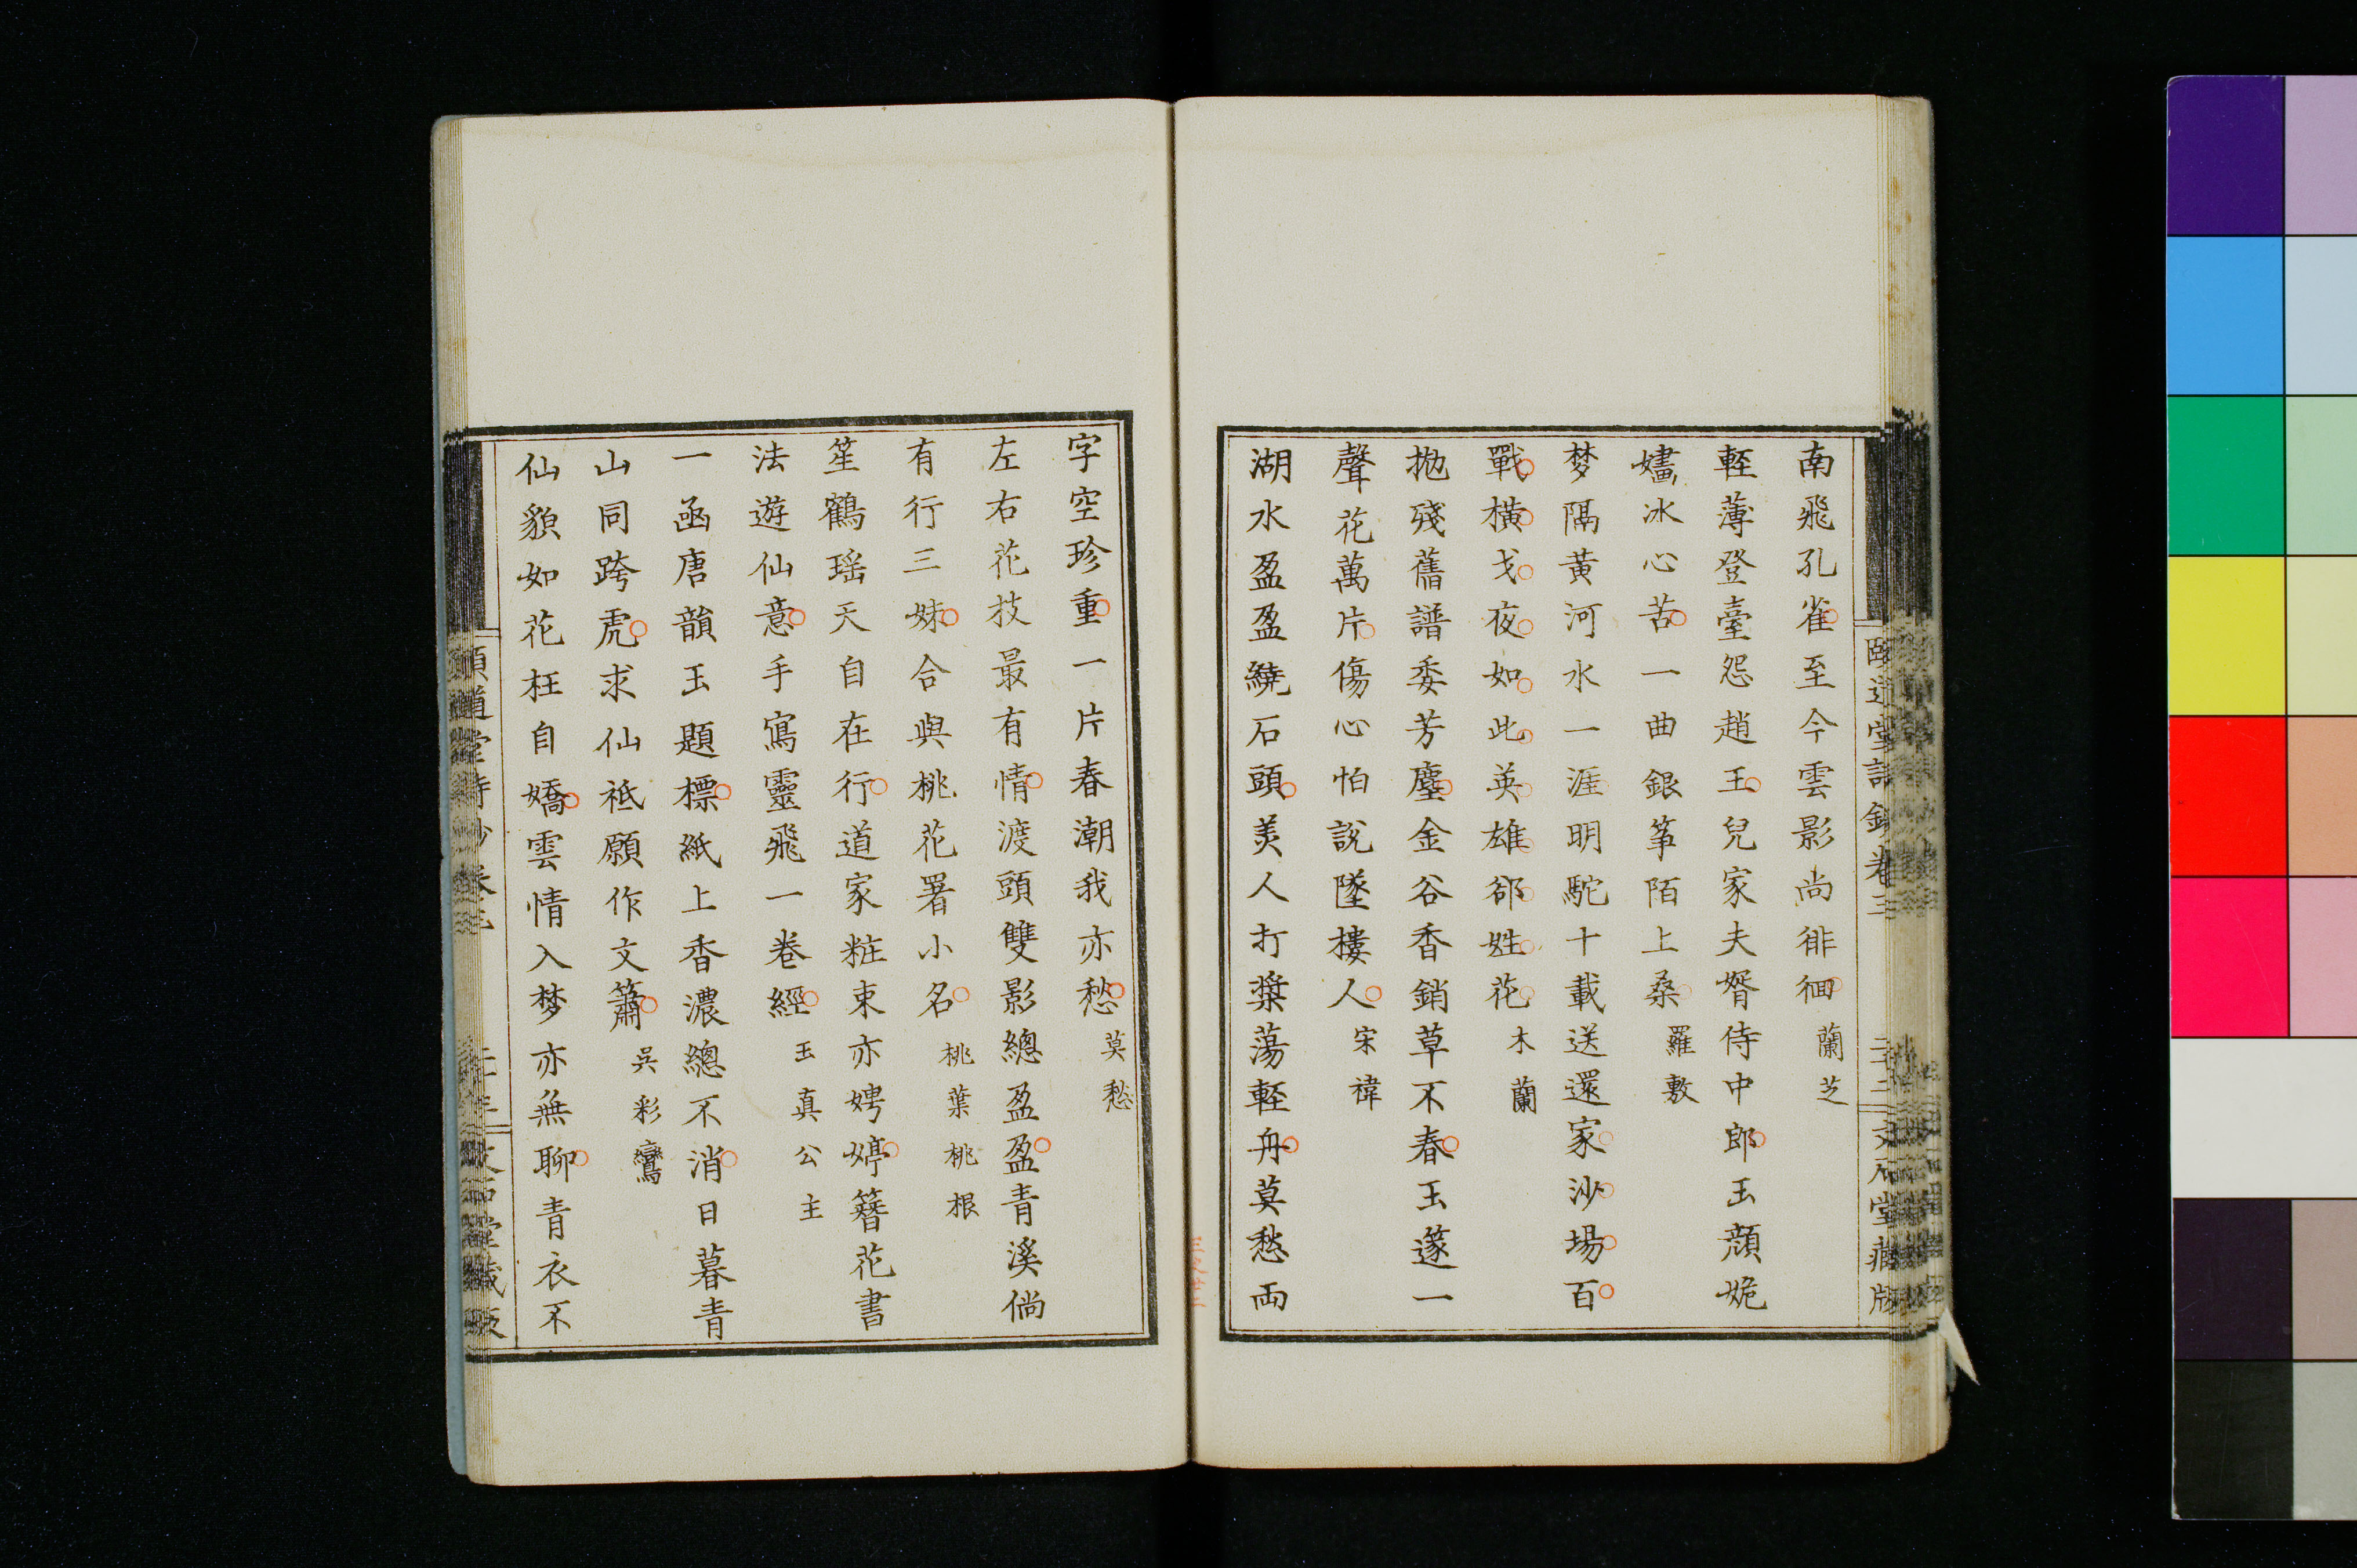 南飛孔雀至今雲影尚徘徊蘭芝
輕薄登臺怨趙王兒家夫婿侍中郎玉顏姽
嫿冰心苦一曲銀筝陌上桑羅敷
梦隔黄河水一涯明駝十載送還家沙場百
戰橫戈夜如此英雄郤姓花木蘭
拋殘舊譜委芳塵金谷香銷草不春玉篴一
聲花萬片傷心怕說墜樓人宋禕
湖水盈盈繞石頭美人打槳蕩輕舟莫愁両
頤道堂詩鈔卷三
文石堂藏版
字空珍重一片春潮我亦愁莫愁
左右花枝最有情渡頭雙影總盈盈青溪倘
有行三妹合與桃花署小名桃葉桃根
笙鶴瑶天自在行道家粧束亦娉婷簪花書
法遊仙意手寫靈飛一卷經玉真公主
一函唐韻玉題標紙上香濃總不消日暮青
山同跨虎求仙祗願作文簫吳彩鸞
仙貌如花枉自嬌雲情入梦亦無聊青衣不
頤道堂詩鈔卷三
文石堂藏版